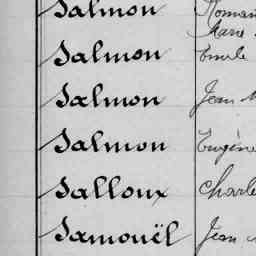 Salmon Romain
Marie
Salmon Emile
Salmon Jean M
Salmon Eugène
Salloux Charle
Samouël Jean